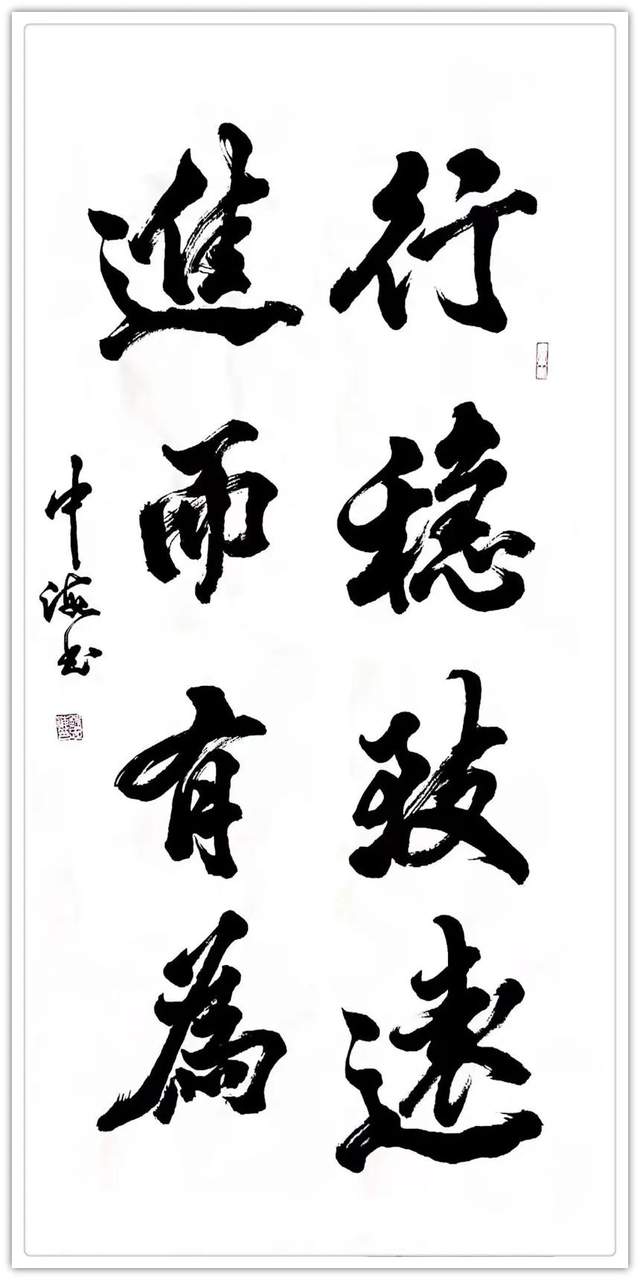 行穩致遠
進而有為
中海书